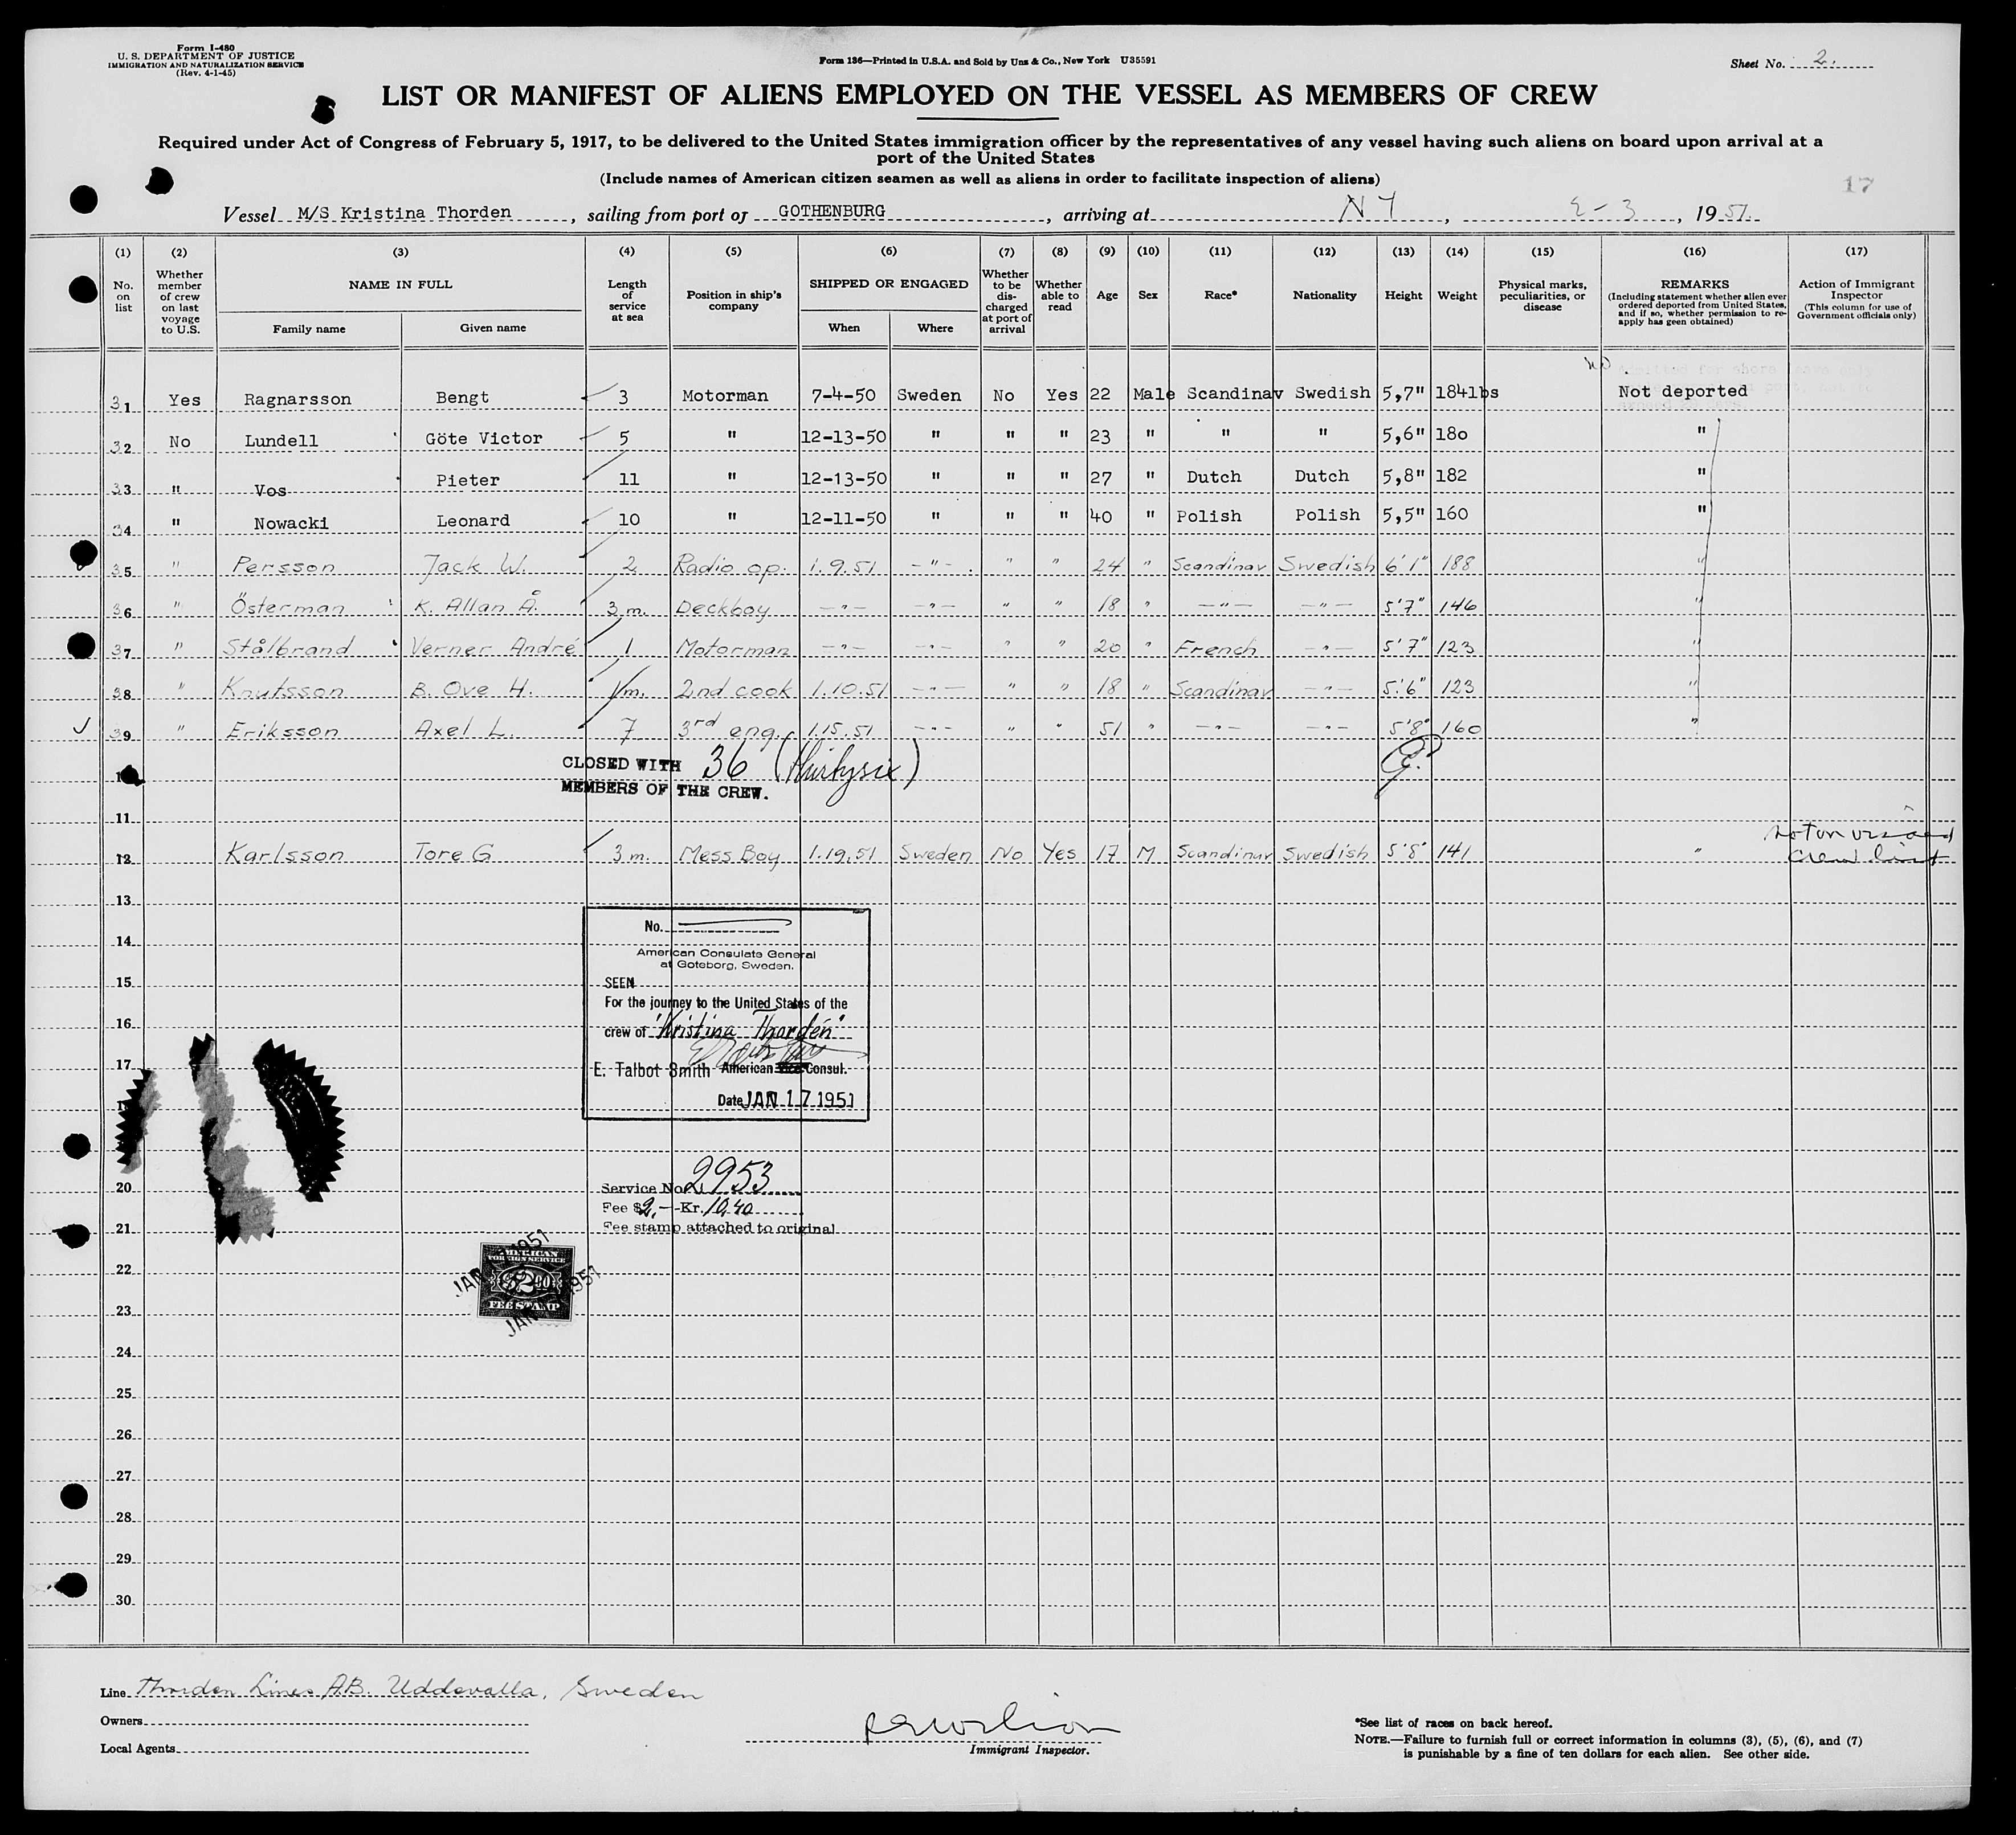 Form I-480
U. S. DEPARTMENT OF JUSTICE
IMMIGRATION AND NATURALIZATION SERVICE
(Rev. 4-1-45)
Form 136—Printed in U.S.A. and Sold by Unz & Co., New York U35591
Sheet No. 2.
LIST OR MANIFEST OF ALIENS EMPLOYED ON THE VESSEL AS MEMBERS OF CREW
Required under Act of Congress of February 5, 1917, to be delivered to the United States immigration officer by the representatives of any vessel having such aliens on board upon arrival at a
port of the United States
(Include names of American citizen seamen as well as aliens in order to facilitate inspection of aliens)
17
Vessel M/S Kristina Thorden, sailing from port of GOTHENBURG, arriving at N Y, 2-3, 1951.
(1) (2) (3) (4) (5) (6) (7) (8) (9) (10) (11) (12) (13) (14) (15) (16) (17)
No. on list
Whether member of crew on last voyage to U.S.
NAME IN FULL
Family name
Given name
Length of service at sea
Position in ship's company
SHIPPED OR ENGAGED
When
Where
Whether to be discharged at port of arrival
Whether able to read
Age
Sex
Race*
Nationality
Height
Weight
Physical marks, peculiarities, or disease
REMARKS
(Including statement whether alien ever ordered deported from United States, and if so, whether permission to re-apply has geen obtained)
Action of Immigrant Inspector
(This column for use of Government officials only)
31 Yes Ragnarsson Bengt 3 Motorman 7-4-50 Sweden No Yes 22 Male Scandinav Swedish 5,7" 184lbs Not deported
32 No Lundell Göte Victor 5 " 12-13-50 " " " 23 " " " 5,6" 180 "
33 " Vos Pieter 11 " 12-13-50 " " " 27 " Dutch Dutch 5,8" 182 "
34 " Nowacki Leonard 10 " 12-11-50 " " " 40 " Polish Polish 5,5" 160 "
35 " Persson Jack W. 2 Radio op. 1.9.51 -"- " " 24 " Scandinav Swedish 6'1" 188 "
36 " Österman K. Allan Å. 3 m. Deckboy -"- -"- " " 18 " -"- -"- 5'7" 146 "
37 " Stålbrand Verner André 1 Motorman -"- -"- " " 20 " French -"- 5'7" 123 "
38 " Knutsson B. Ove H. 1 m. 2nd cook 1.10.51 -"- " " 18 " Scandinav -"- 5'6" 123 "
39 " Eriksson Axel L. 7 3rd eng. 1.15.51 -"- " " 51 " -"- -"- 5'8" 160 "
CLOSED WITH 36 (thirtysix)
MEMBERS OF THE CREW.
11
12 Karlsson Tore G 3 m. Mess Boy 1.19.51 Sweden No Yes 17 M Scandinav Swedish 5'8" 141 " not on visaed
crew list
13
No.
14
American Consulate General
at Goteborg, Sweden.
15
SEEN
For the journey to the United States of the
16
crew of "Kristina Thordén"
17
E. Talbot Smith American Vice Consul.
Date JAN 17 1951
20
Service No. 2953
Fee $2,- Kr. 10,40
21
Fee stamp attached to original
22
AMERICAN
FOREIGN SERVICE
$2.00
FEE STAMP
23
24
25
26
27
28
29
30
Line Thorden Lines A.B. Uddevalla, Sweden
Owners
Local Agents
Immigrant Inspector.
*See list of races on back hereof.
NOTE.—Failure to furnish full or correct information in columns (3), (5), (6), and (7)
is punishable by a fine of ten dollars for each alien. See other side.